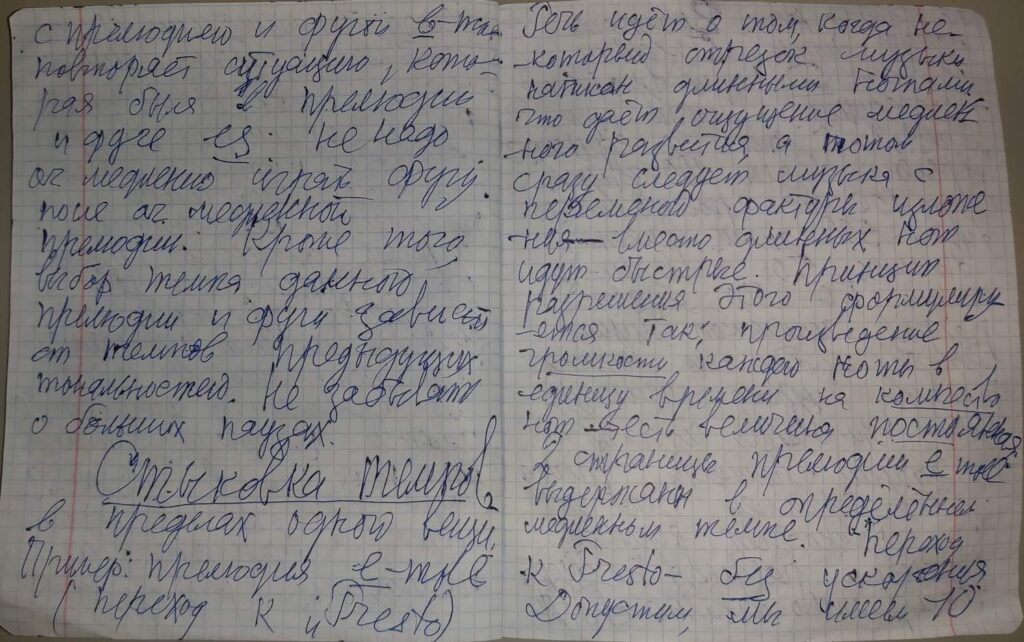 с прелюдией и фугой в-mоll
повторяет ситуацию, кото-
рая была в прелюдии
и фуге es. не надо
оч медленно играть фугу
после оч медленной
прелюдии. Кроме того,
выбор темпа данной
прелюдии и фуги зависит
от темпов предыдущих
тональностей. Не забывать
о больших паузах.
Стыковка темпов
в пределах одной вещи.
Пример: прелюдия e-moll
(переход к Presto)
Речь идёт о том, когда не-
который отрезок музыки
написан длинными нотами
что даёт ощущение медлен
ного развития а потом
сразу следует музыка с
переменой фактуры изложе
ния - вместо длинных нот
идут быстрые. Принцип
разрешения этого формулиру
ется так: произведение
громкости каждой ноты в
единицу времени на количество
нот - есть величина постоянная
2 страницы прелюдии e moll
выдержаны в определённом
медленном темпе. Переход
к Presto - без ускорения
Допустим, мы имеем 10